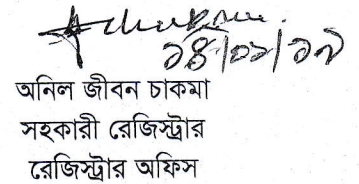 অনিল জীবন চাকমা
সহকারী রেজিস্ট্রার
রেজিস্ট্রার অফিস